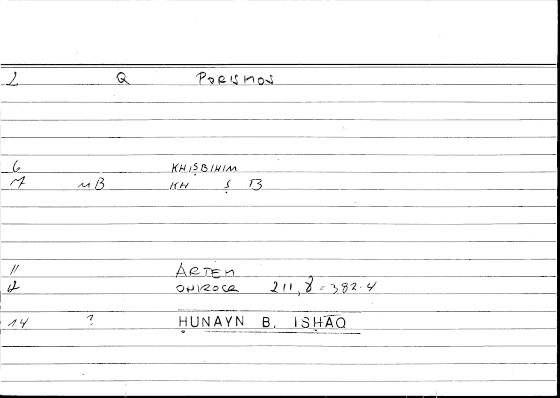 2 Q PORISMOS
6 KHIṢBIHIM
7 nB KH Ṣ B
11 ARTEM
12 ONIROCR 211,8 = 382.4
14 ? ḤUNAYN B. ISḤĀQ